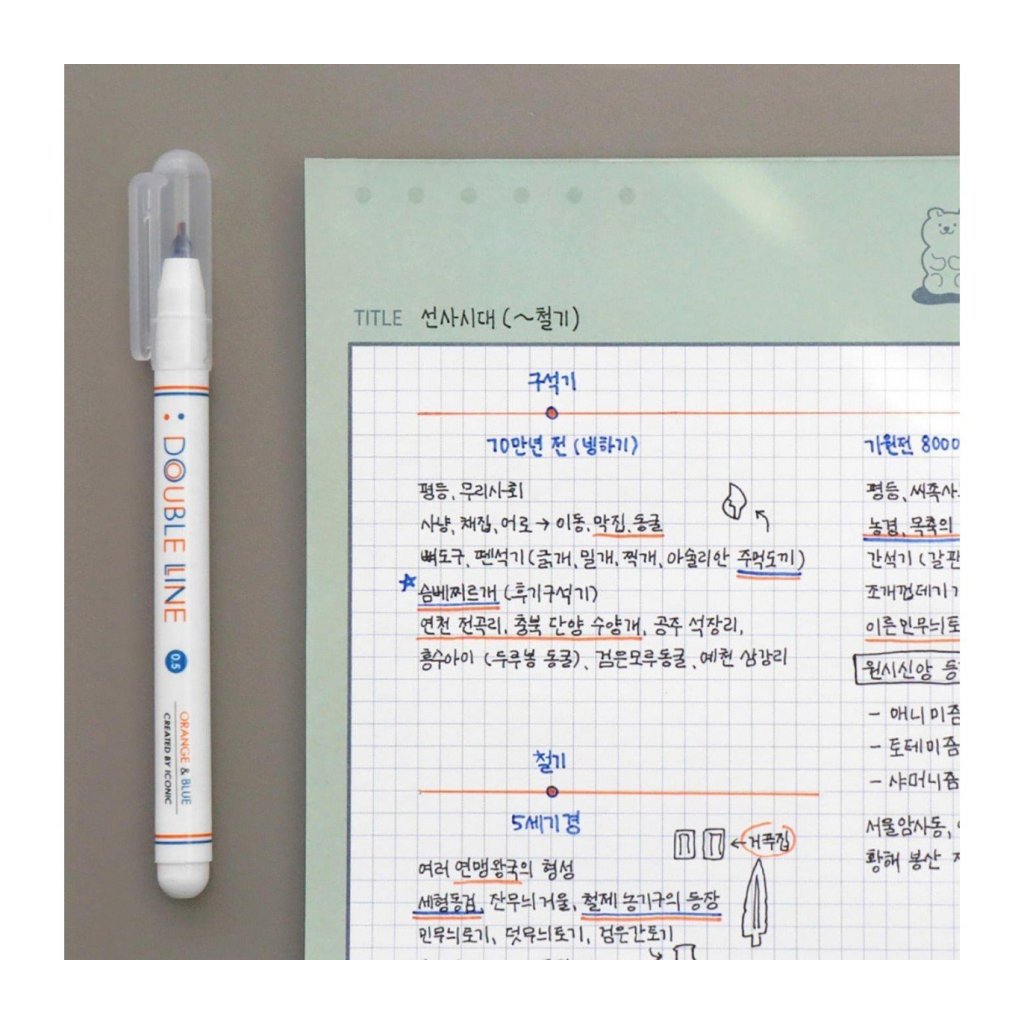 DOUBLE LINE
0.5
ORANGE & BLUE
CREATED BY ICONIC
TITLE 선사시대 (~철기)
구석기
70만년 전 (빙하기)
평등, 무리사회
사냥, 채집, 어로 → 이동, 막집, 동굴
뼈도구, 뗀석기 (긁개, 밀개, 찍개, 아슐리안 주먹도끼)
슴베찌르개 (후기구석기)
연천 전곡리, 충북 단양 수양개, 공주 석장리,
흥수아이 (두루봉 동굴), 검은모루동굴, 예천 삼강리
철기
5세기경
거푸집
여러 연맹왕국의 형성
세형동검, 잔무늬 거울, 철제 농기구의 등장
민무늬토기, 덧무늬토기, 검은간토기
기원전 8000
평등, 씨족사
농경, 목축의
간석기 (갈판
조개껍데기
이른민무늬토
원시신앙 등
- 애니미즘
- 토테미즘
- 샤머니즘
서울암사동,
황해 봉산